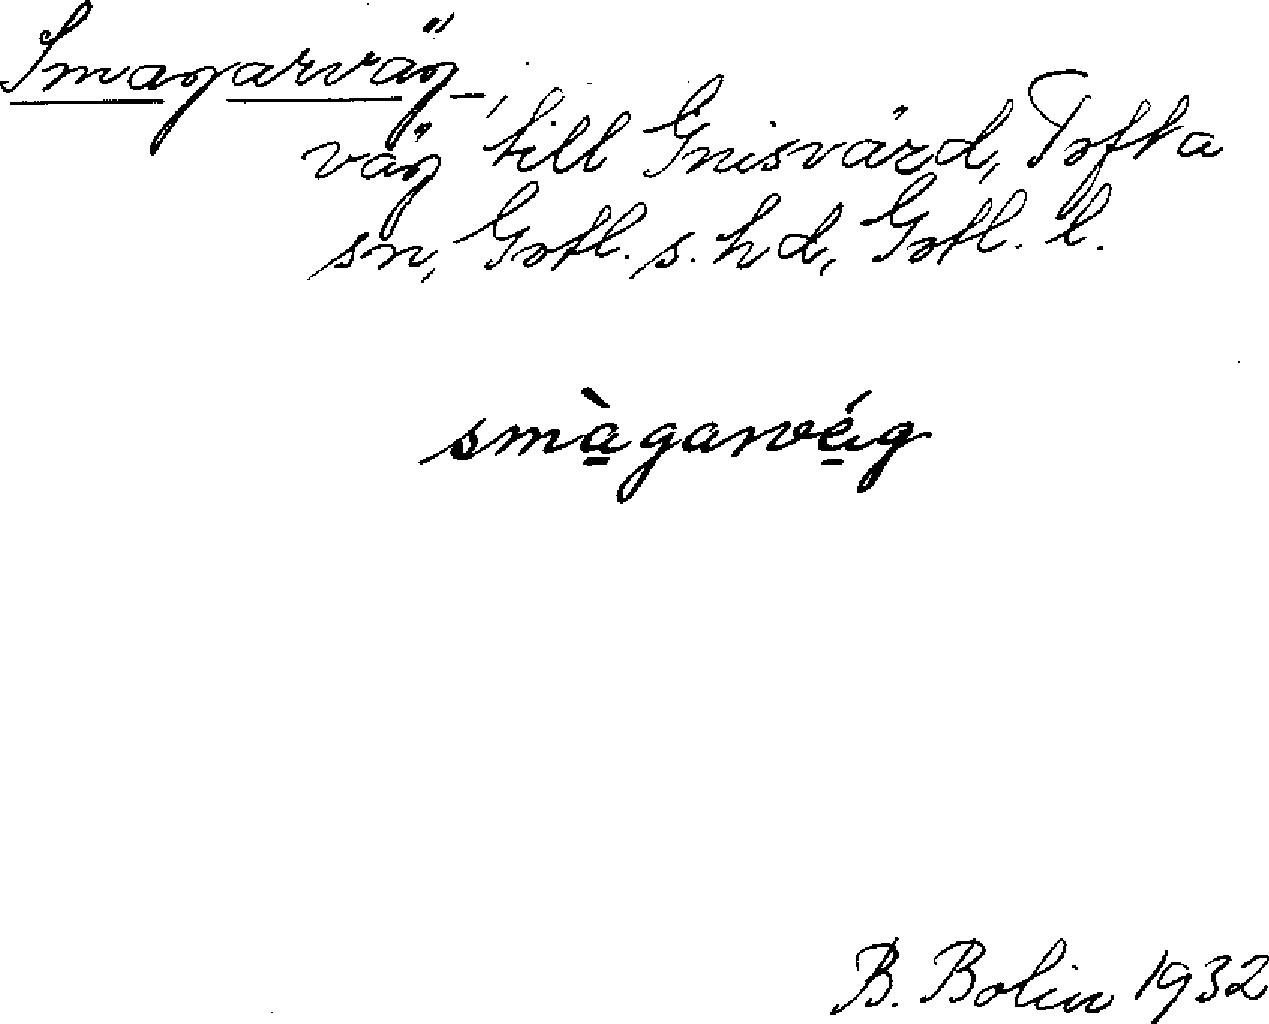 Smagarväg,
väg till Gnisvärd, Tofta
sn, Gotl. s. hd, Gotl. l.
smàgarvég
B. Bolin 1932